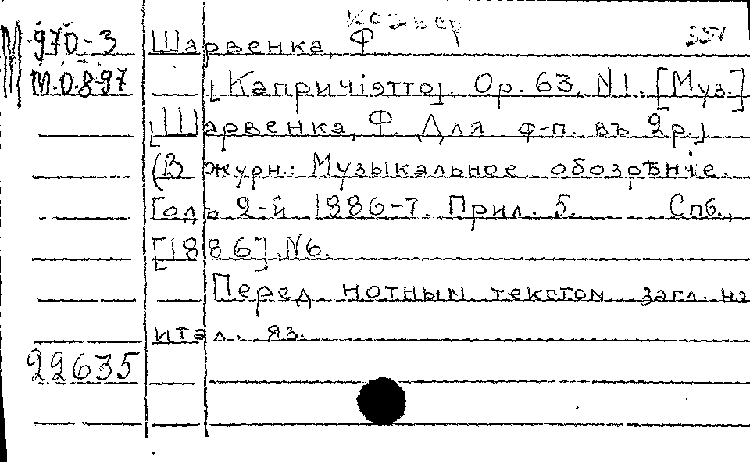 М 970-3 Шарвенка, Ф
М.08.97 [Капричiэтто]. Ор. 63. N1. [Муз.]
[Шарвенка, Ф. Для ф-п. въ 2р.]
(В журн: Музыкальное обозрѣніе.
Годъ 2-й 1886-7. Прил. 5. Спб.,
[1886]. N6.
Перед нотным текстом загл. на
итал. яз.
22635